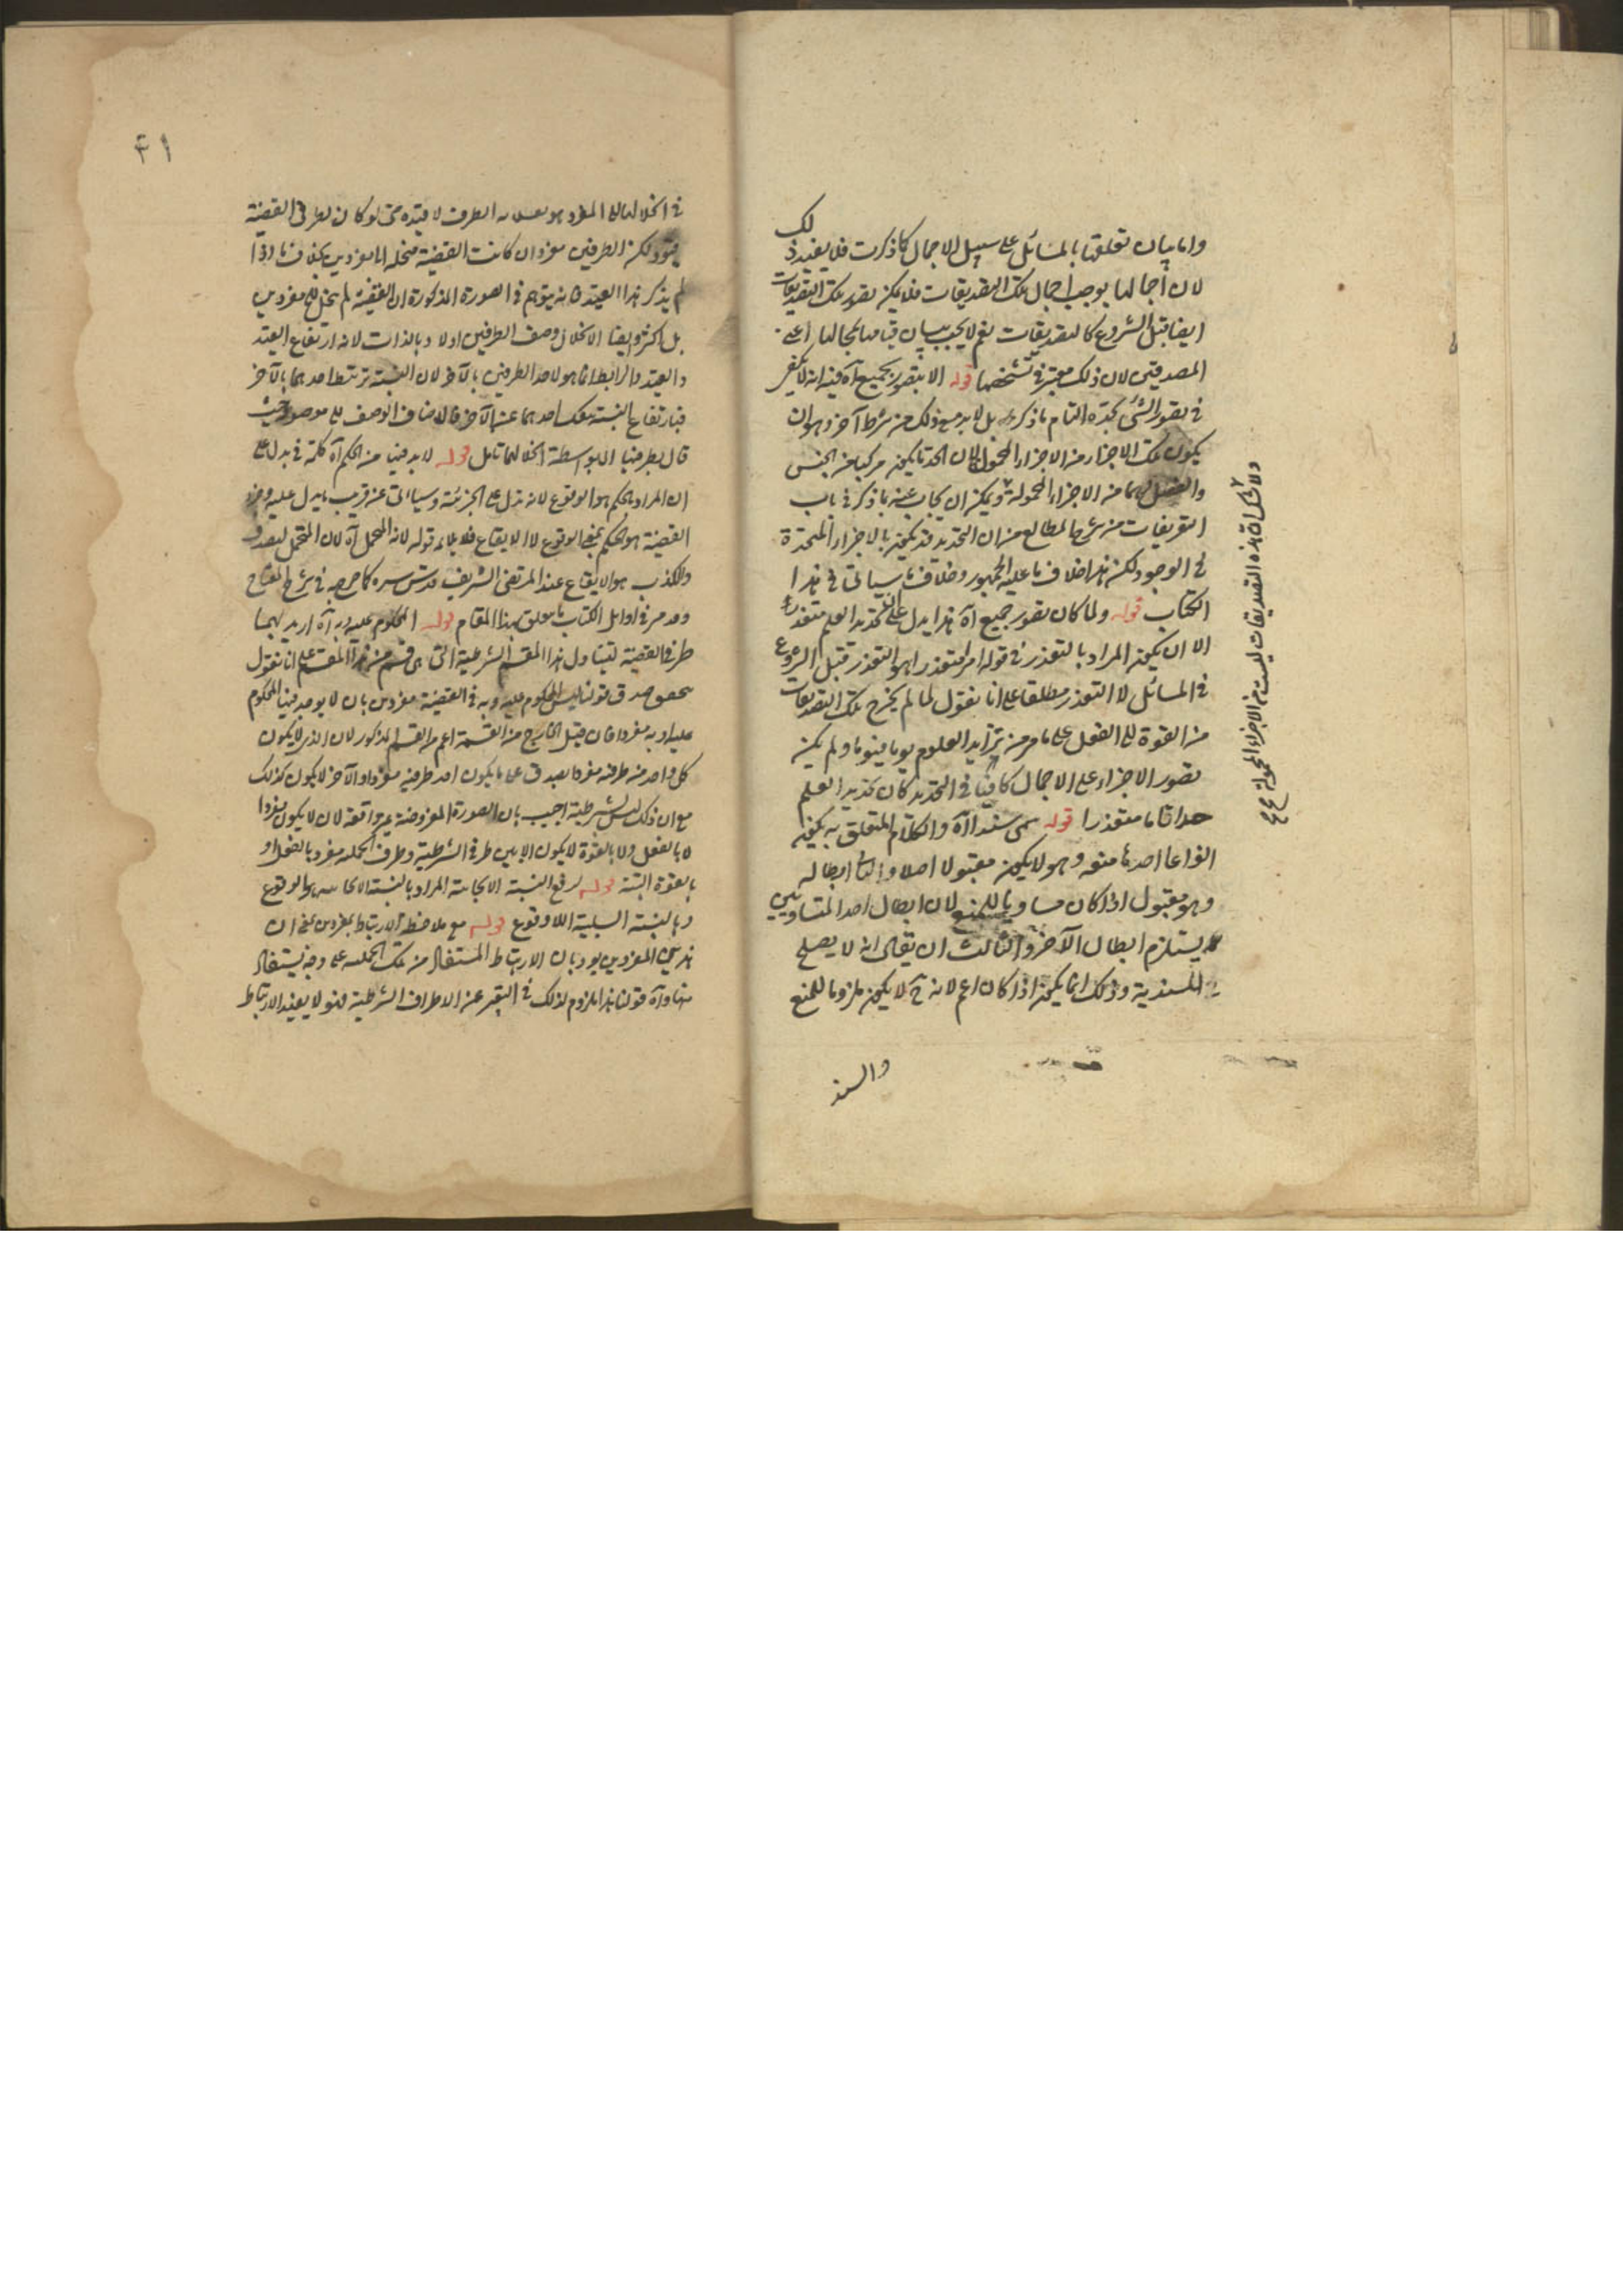 واما بيان تعلقها بالمسائل على سبيل الاجمال كما ذكرت فلا يفيد ذلك
لان اجمالها يوجب اجمال تلك التصديقات فلا يمكن تصور تلك التصديقات
ايضا قبل الشروع كالتصديقات نعم لا يجب بيان قيامها بمحالها اعني
المصدقين لان ذلك معتبر في تشخصها قوله الا بتصور جميع آه فيه انه لا يكفي
في تصور الشئ بحده التام ما ذكره بل لا بد مع ذلك من شرط آخر وهو ان
يكون تلك الاجزاء من الاجزاء المحمولة لان الحد انما يكون مركبا من الجنس
والفصل وهما من الاجزاء المحمولة ويمكن ان يجاب عنه بما ذكر في باب
التعريفات من شرح المطالع من ان التحديد قد يكون بالاجزاء الغير المتحدة
في الوجود لكن هذا خلاف ما عليه الجمهور وخلاف ما سيأتي في هذا
الكتاب قوله ولما كان تصور جميع آه هذا يدل على ان تحديد العلم متعذر
الا ان يكون المراد بالتعذر في قوله امرا متعذرا هو التعذر قبل الشروع
في المسائل لا التعذر مطلقا على انا نقول لما لم يخرج تلك التصديقات
من القوة الى الفعل على ما مر من تزايد العلوم يوما فيوما ولم يكن
تصور الاجزاء على الاجمال كافيا في التحديد كان تحديد العلم
حدا تاما متعذرا قوله سمى سندا آه والكلام المتعلق به يكون
انواعا احدها منعه وهو لا يكون مقبولا اصلا والثاني ابطاله
وهو مقبول اذا كان مساويا للمنع لان ابطال احد المتساويين
يستلزم ابطال الآخر والثالث ان يقال انه لا يصلح
للسندية وذلك انما يكون اذا كان اعم لانه ح لا يكون ملزوما للمنع
والسند
هذه التصديقات ليست من الاجزاء المحمولة
٤١
القضية
الطرفين مفردان كانت القضية منحلة الى مفردين بخلاف ما اذا
لم يذكر هذا القيد فانه يتوهم في الصورة المذكورة ان القضية لم تنحل الى مفردين
بل اكثر وايضا الانحلال وصف الطرفين اولا وبالذات لانه ارتفاع القيد
والقيد والرابط انما هو لاحد الطرفين بالآخر لان النسبة تربط احدهما بالآخر
فبارتفاع النسبة ينفك احدهما عن الآخر فالاضاف الوصف الى موصوفه حيث
قال بطرفيها لا بواسطة انحلالها تأمل قوله لا بد فيها من الحكم آه كلمة في يدل على
ان المراد بالحكم هو الوقوع لانه يدل على الجزئية وسيأتي عن قريب ما يدل عليه وجزء
القضية هو الحكم بمعنى الوقوع لا الايقاع فلا يلائمه قوله لانه المحتمل آه لان المحتمل للصدق
والكذب هو الايقاع عند المرتضى الشريف قدس سره كما صرح به في شرح المفتاح
وقد مر في اوائل الكتاب ما يتعلق بهذا المقام قوله المحكوم عليه وبه آه اريد بهما
طرفا القضية ليتناول هذا المقسم الشرطية التي هي قسم من هذا المقسم على انا نقول
صدق قولنا ليس المحكوم عليه وبه في القضية مفردين بان لا يوجد فيها المحكوم
عليه وبه مفردا فان قيل الخارج من القسمة اعم من القسم المذكور لان الذي لا يكون
كل واحد من طرفيه مفردا يصدق على ما يكون احد طرفيه مفردا والآخر لا يكون كذلك
مع ان ذلك ليس بشرطية اجيب بان الصورة المفروضة غير واقعة لان لا يكون مفردا
لا بالفعل ولا بالقوة لا يكون الا بين طرفي الشرطية وطرف الحملية مفرد بالفعل او
بالقوة البتة قوله لرفع النسبة الايجابية المراد بالنسبة الايجابية هو الوقوع
وبالنسبة السلبية اللاوقوع قوله مع ملاحظة الارتباط بمفردين بمعنى ان
هذين المفردين يؤديان الارتباط المستفاد من تلك الحملية على وجه يستفاد
منهما وآه قولنا هذا ملزوم لذلك في التعبير عن الاطراف الشرطية لغو لا يفيد الارتباط